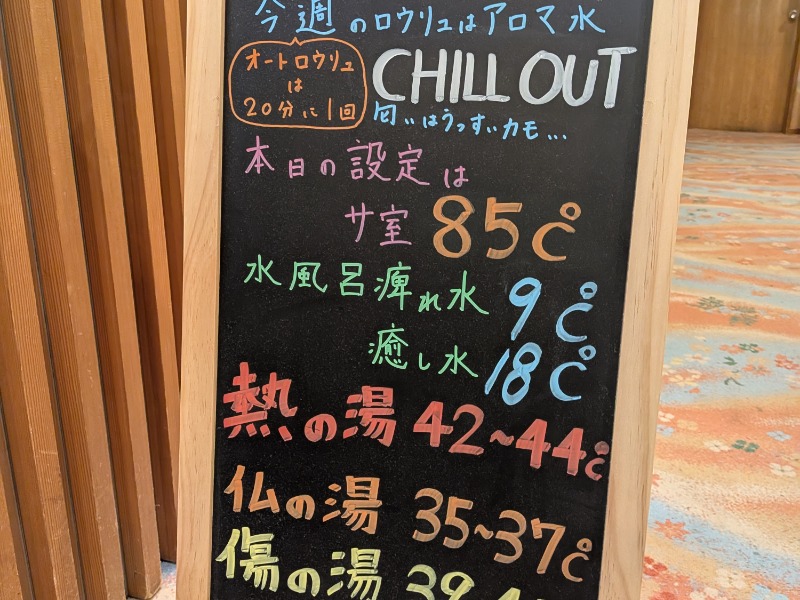 今週のロウリュはアロマ水
オートロウリュ
は
20分に1回
CHILL OUT
匂いはうっすいカモ...
本日の設定は
サ室 85℃
水風呂 痺れ水 9℃
癒し水 18℃
熱の湯 42~44℃
仏の湯 35~37℃
傷の湯 39